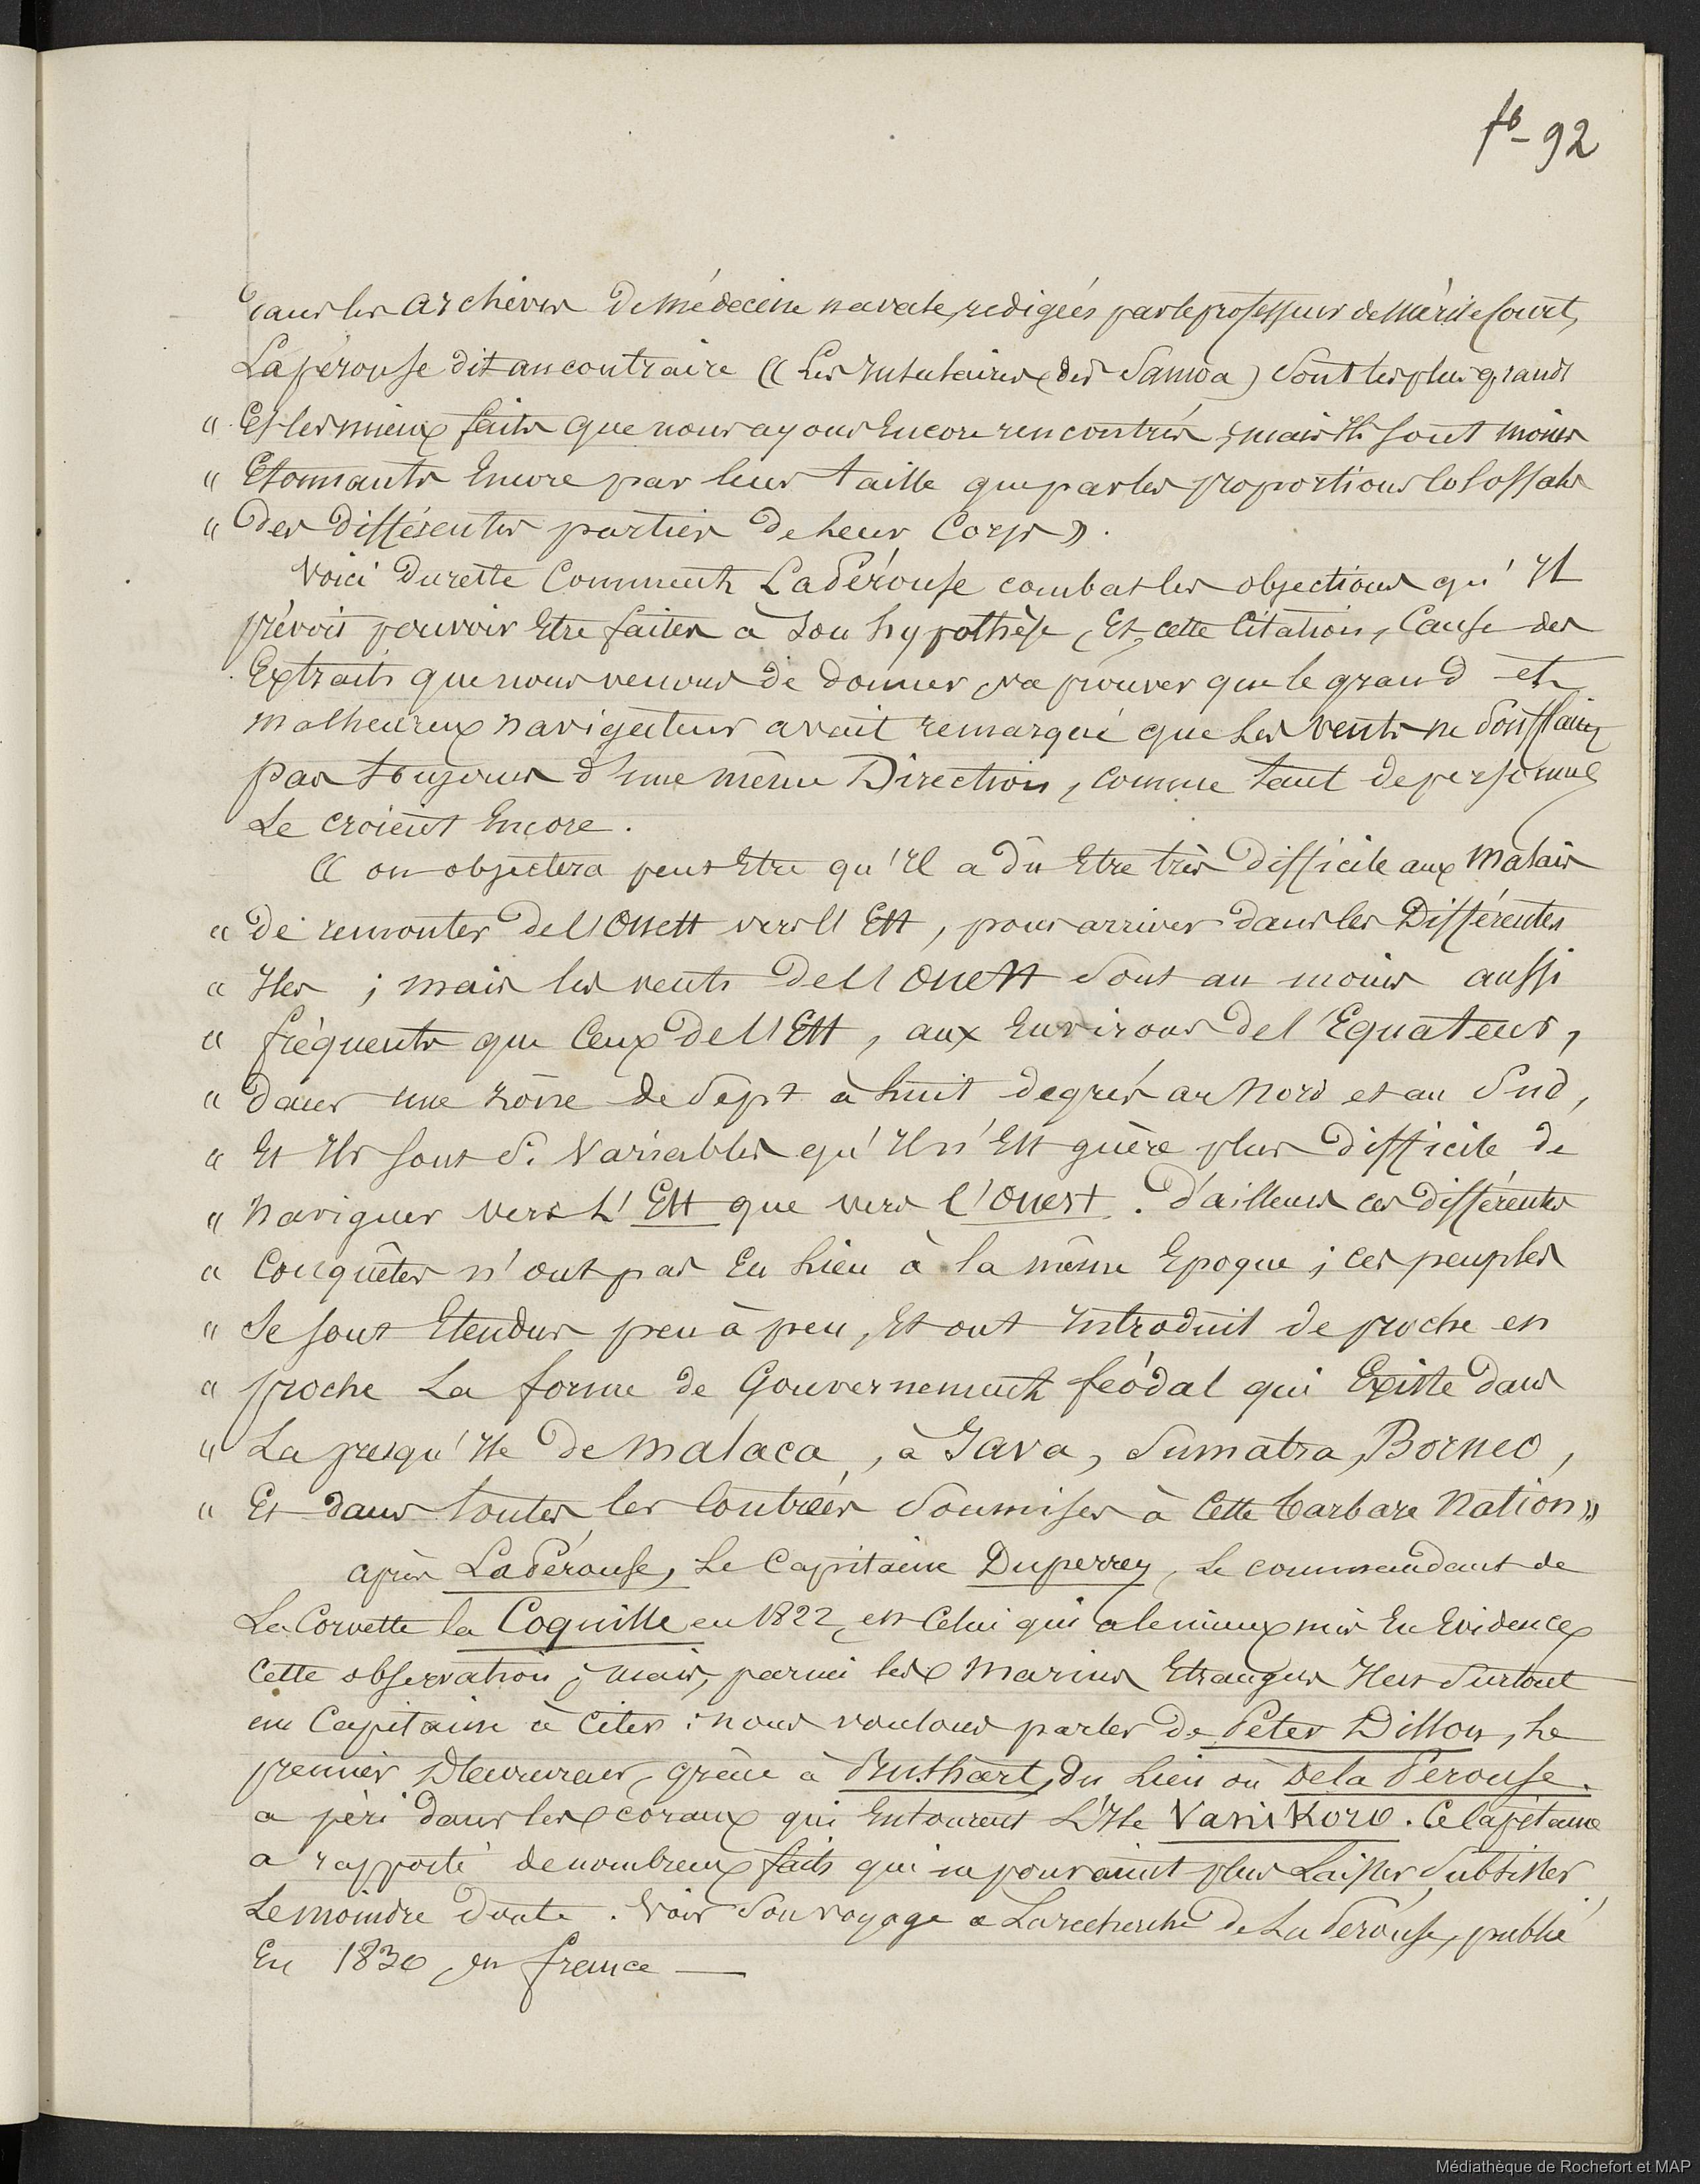 fo- 92
dans les archives de Médecine navale, redigées par le professeur de Méricourt,
Lapérouse dit au contraire (( Les Insulaires (des Samoa) sont les plus grands
" Et les mieux faits que nous ayons Encore rencontrés ; mais Ils sont moins
" Etonnants Encore par leur taille que par les proportions Colossales
" des différentes parties de leur Corps )).
Voici dureste Comment LaPérouse combat les objections qu'Il
prévoit pouvoir Etre faites à son hypothèse, Et cette Citation, Cause des
Extraits que nous venons de donner, va prouver que le grand et
malheureux navigateur avait remarqué que les vents ne soufflaient
pas toujours d'une même Direction, comme tant de personnes
Le croient Encore.
(( on objectera peut Etre qu'Il a dû Etre très difficile aux Malais
" de remonter de l'Ouest vers l'Est, pour arriver dans les Différentes
" Iles ; mais les vents de l'Ouest sont au moins aussi
" fréquents que Ceux de l'Est, aux Environs de l'Equateur,
" dans une zône de Sept à huit degrés au Nord et au Sud,
" Et Ils sont Si Variables qu'Il n'Est guère plus difficile de
" naviguer vers L'Est que vers l'Ouest. D'ailleurs ces différentes
" Conquêtes n'ont pas Eu Lieu à la même Epoque ; ces peuples
" Se sont Etendus peu à peu, Et ont Introduit de proche en
" proche La forme de Gouvernement féodal qui Existe dans
" La presqu'Ile de Malaca, à Java, Sumatra, Borneo,
" Et dans toutes les Contrées Soumises à Cette barbare Nation ))
après LaPérouse, Le Capitaine Duperrey, Le commandant de
La Corvette la Coquille en 1822, est Celui qui a le mieux mis En Evidence
Cette observation ; mais, parmi les Marins Etrangers Il est Surtout
un Capitaine à Citer : nous voulons parler de Peter Dillon, Le
premier Découvreur, grâce à Bushart, du Lieu où De la Pérouse
a péri dans les coraux qui Entourent L'Ile Vanikoro. Ce Capitaine
a rapporté de nombreux faits qui ne pouvaient plus Laisser Subsister
Le moindre doute. Voir Son voyage à La recherche de La Pérouse, publié
En 1830, en france —
Médiathèque de Rochefort et MAP